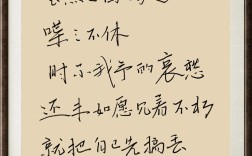 喋喋不休
时不我予的哀愁
还未如愿见着不朽
就把自己先搞丢